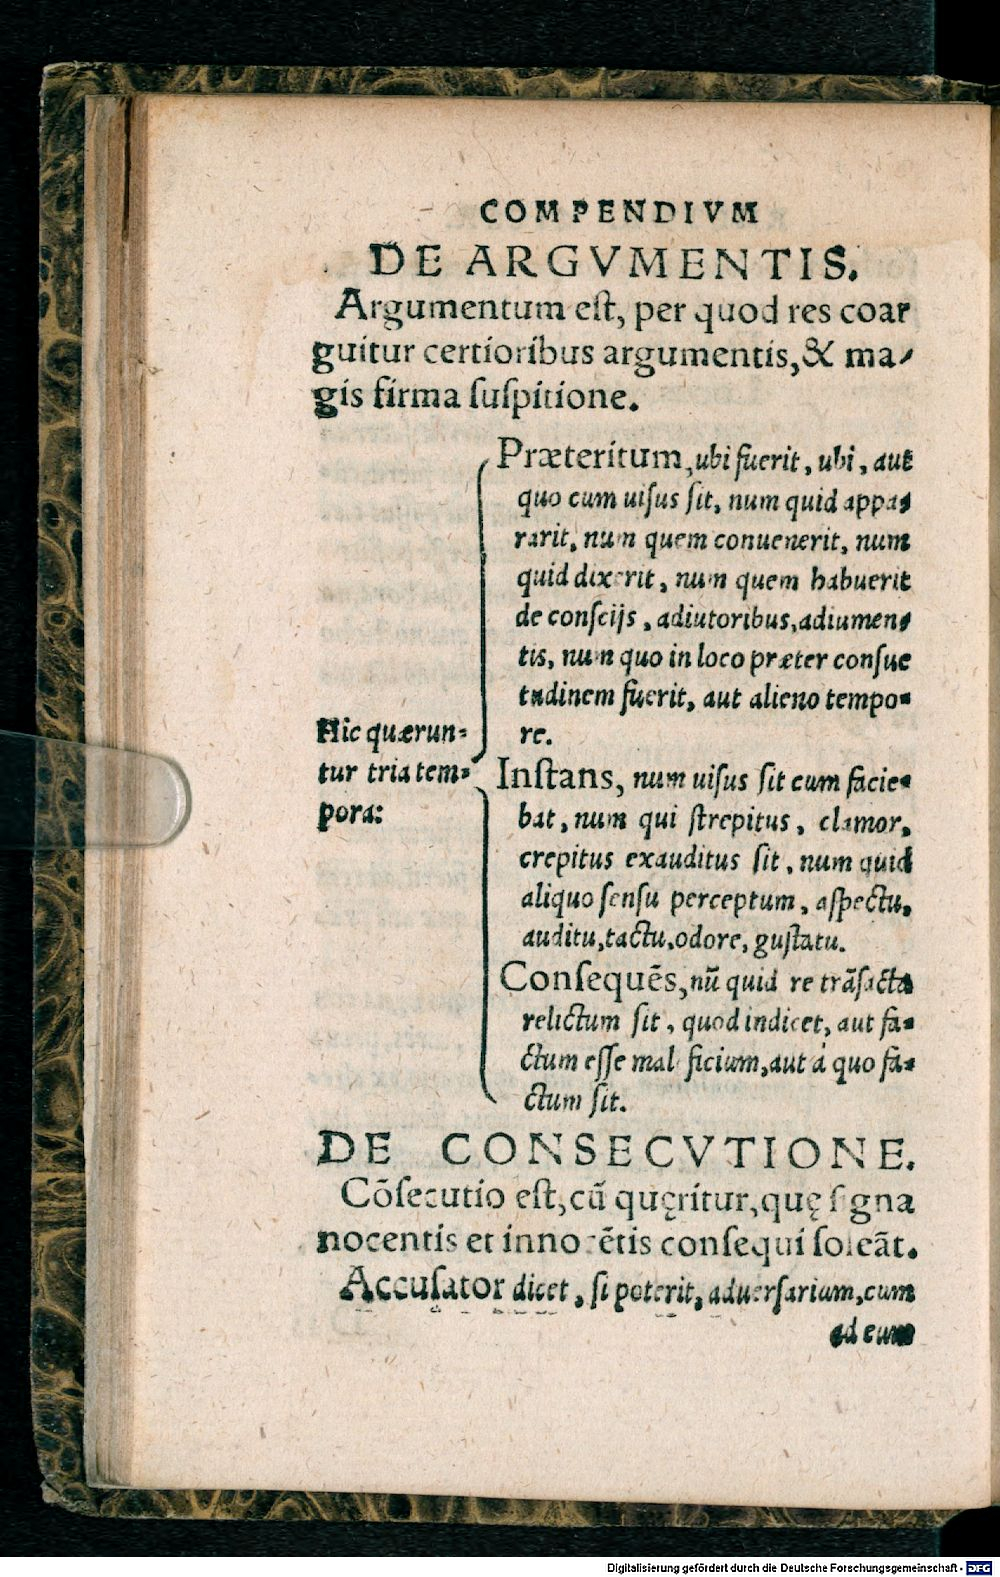 COMPENDIVM
DE ARGVMENTIS.
Argumentum eſt, per quod res coar
guitur certioribus argumentis, & ma-
gis firma ſuſpitione.
Hic quærun=
tur tria tem=
pora:
Præteritum, ubi fuerit, ubi, aut
quo cum uiſus ſit, num quid appa=
rarit, num quem conuenerit, num
quid dixerit, num quem habuerit
de conſcijs, adiutoribus, adiumen=
tis, num quo in loco præter conſue
tudinem fuerit, aut alieno tempo=
re.
Inſtans, num uiſus ſit cum facie=
bat, num qui ſtrepitus, clamor,
crepitus exauditus ſit, num quid
aliquo ſenſu perceptum, aſpectu,
auditu, tactu, odore, guſtatu.
Conſequẽs, nũ quid re trãſacta
relictum ſit, quod indicet, aut fa=
ctum eſſe mal ficium, aut à quo fa=
ctum ſit.
DE CONSECVTIONE.
Cõſecutio eſt, cũ quęritur, quę ſigna
nocentis et innocẽtis conſequi ſoleãt.
Accuſator dicet, ſi poterit, aduerſarium, cum
ad eum
Digitalisierung gefördert durch die Deutsche Forschungsgemeinschaft - DFG